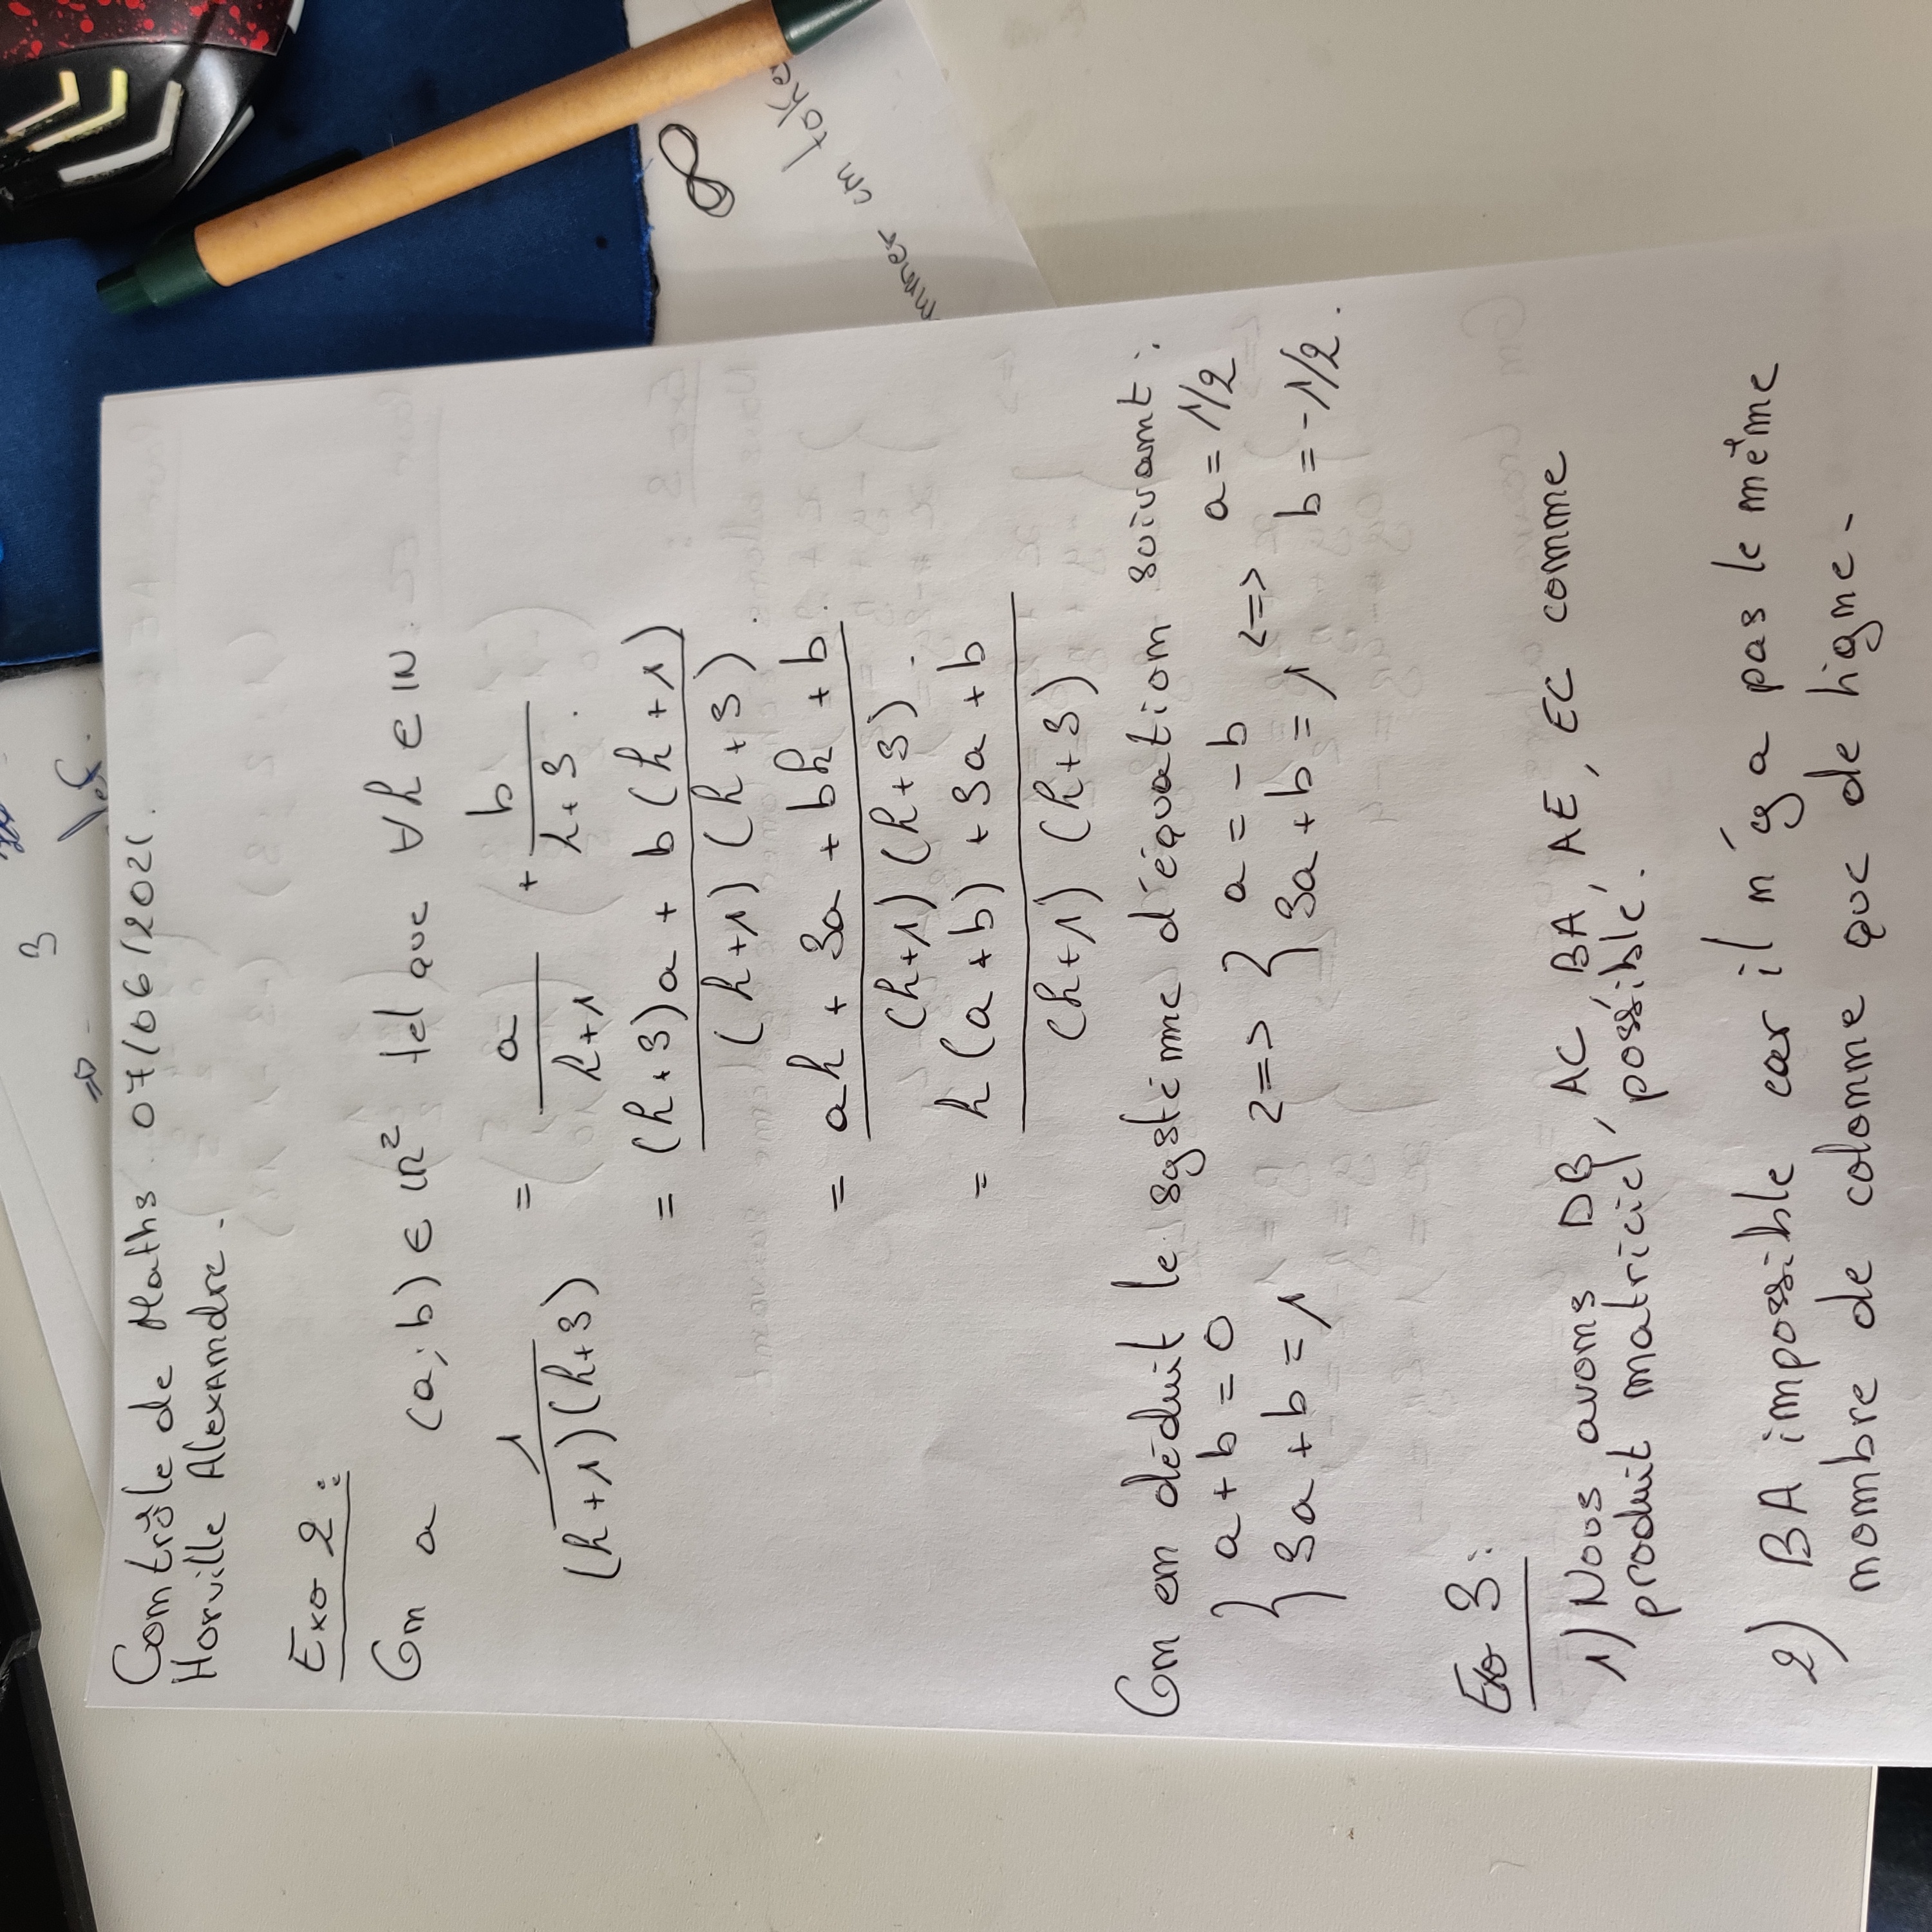 3
=>
def.
Contrôle de Maths 07/06/2021.
Horville Alexandre.
Exo 2 :
On a (a;b) ∈ IR² tel que ∀k ∈ IN.
1/((k+1)(k+3)) = a/(k+1) + b/(k+3).
= ((k+3)a + b(k+1))/((k+1)(k+3)).
= (ak + 3a + bk + b)/((k+1)(k+3)).
= (k(a+b) + 3a + b)/((k+1)(k+3))
On en déduit le système d'équation suivant :
{ a + b = 0 <=> { a = -b <=> a = 1/2
{ 3a + b = 1 { 3a + b = 1 b = -1/2.
Exo 3 :
1) Nous avons DB, AC, BA, AE, EC comme
produit matriciel possible.
2) BA impossible car il n'y a pas le même
nombre de colonne que de ligne.
∞
en